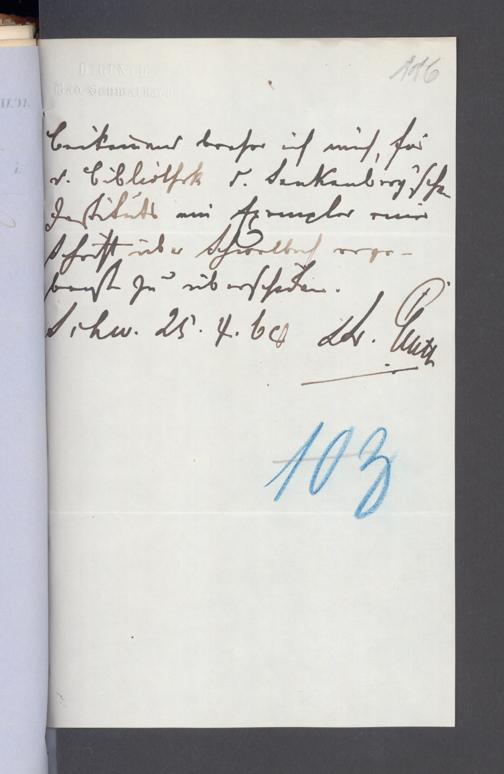 116
Bad Schwalbach
beehre ich mich, für
d. Bibliothek d. Senkenberg'schen
Instituts ein Exemplar einer
Schrift über Schwalbach erge-
benst zu übersenden.
Schw. 25. 4. 60 Dr.
103